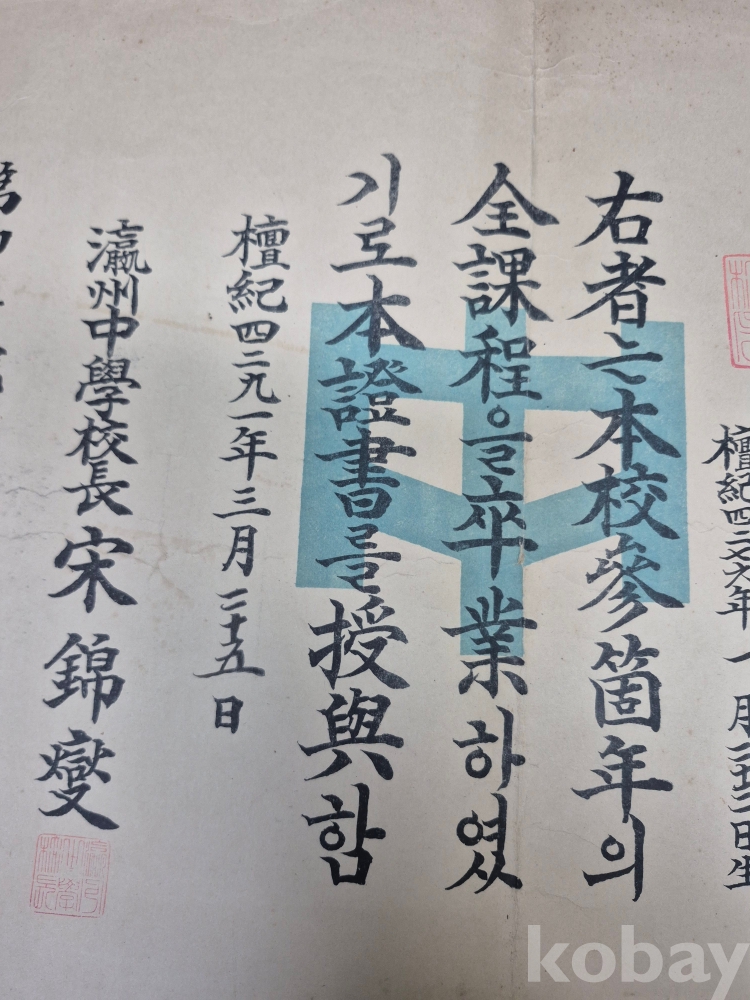 檀紀四二 六年一月 日生
右者는本校參箇年의
全課程을卒業하였
기로本證書를授與함
檀紀四二九一年三月二十五日
瀛州中學校長 宋錦燮
kobay